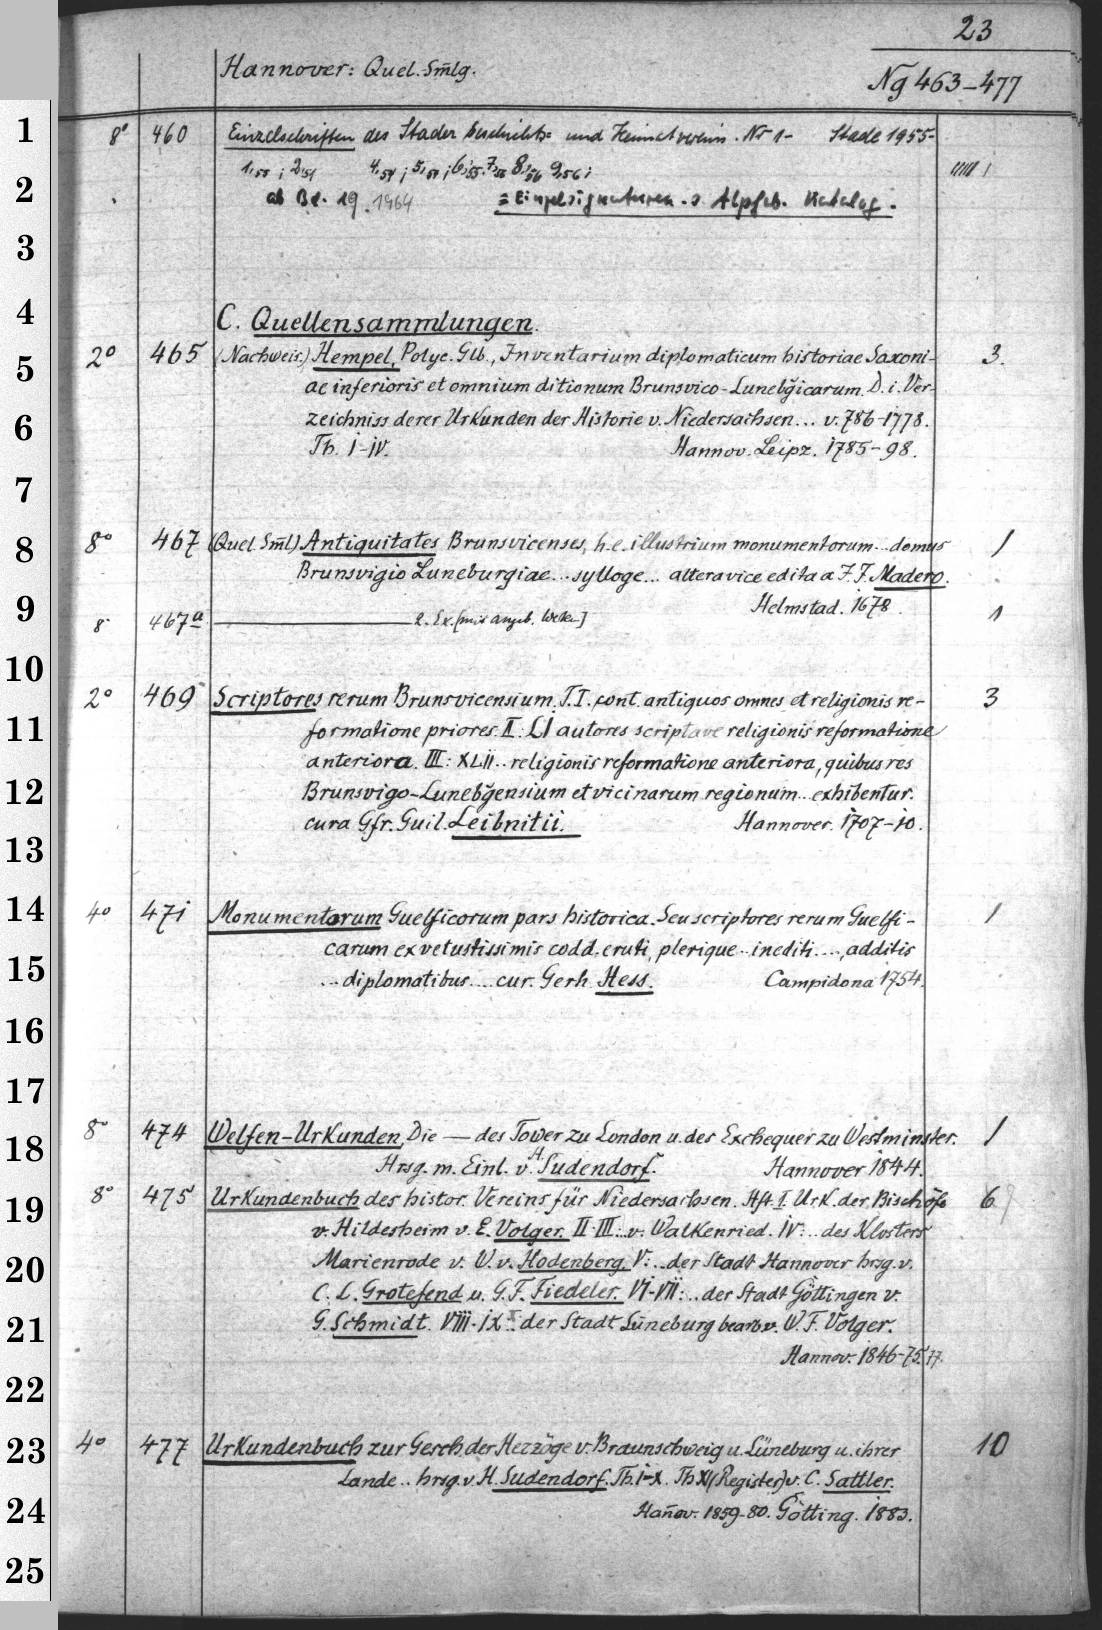 23
Hannover: Quel. Sm̄lg.
Ng 463-477
1 8° 460 Einzelschriften des Stader Geschichts= und Heimatvereins. Nr 1- Stade 1955-
1,55 ; 2,54 4,54 ; 5,54 ; 6,55. 7,56 8,56 9,56 ;
2 ab Bd. 19. 1964 = Einzelsignaturen. s Alphab. Katalog.
3
4 C. Quellensammlungen.
5 2° 465 (Nachweis.) Hempel, Polyc. Glb., Inventarium diplomaticum historiae Saxoni- 3.
ae inferioris et omnium ditionum Brunsvico-Lunebgicarum. D. i. Ver-
6 zeichniss derer Urkunden der Historie v. Niedersachsen... v. 786-1778.
Th. I-IV. Hannov. Leipz. 1785-98.
7
8 8° 467 (Quel. Sml.) Antiquitates Brunsvicenses, h. e. illustrium monumentorum... domus 1
Brunsvigio Luneburgiae... sylloge... altera vice edita a J. J. Madero.
9 Helmstad. 1678.
8° 467a 2. Ex. [mit angeb. Werken] 1
10
2° 469 Scriptores rerum Brunsvicensium. T. I. cont. antiquos omnes et religionis re- 3
11 formatione priores. II: LI autores scriptave religionis reformatione
anteriora. III: XLII.. religionis reformatione anteriora, quibus res
12 Brunsvigo-Lunebgensium et vicinarum regionum... exhibentur.
cura Gfr. Guil. Leibnitii. Hannover. 1707-10.
13
14 4° 471 Monumentorum Guelficorum pars historica. Seu scriptores rerum Guelfi- 1
carum ex vetustissimis codd. eruti, plerique... inediti...., additis
15 ...diplomatibus.... cur. Gerh. Hess. Campidona 1754.
16
17
18 8° 474 Welfen-Urkunden, Die — des Tower zu London u. des Exchequer zu Westminster. 1
Hrsg. m. Einl. v. H. Sudendorf. Hannover 1844.
19 8° 475 Urkundenbuch des histor. Vereins für Niedersachsen. Hft. I. Urk. der Bischöfe 6
v. Hildesheim v. E. Volger. II-III:.. v. Walkenried. IV:.. des Klosters
20 Marienrode v. W. v. Hodenberg. V:.. der Stadt Hannover hrsg. v.
C. L. Grotefend u. G. F. Fiedeler. VI-VII:.. der Stadt Göttingen v.
21 G. Schmidt. VIII-IX:.. der Stadt Lüneburg bearb. v. W. F. Volger.
Hannov. 1846-75. 77.
22
23 4° 477 Urkundenbuch zur Gesch. der Herzöge v. Braunschweig u. Lüneburg u. ihrer 10
Lande.. hrsg. v. H. Sudendorf. Th. I-X. Th. XI (Register) v. C. Sattler.
24 Han̄ov. 1859-80. Götting. 1883.
25